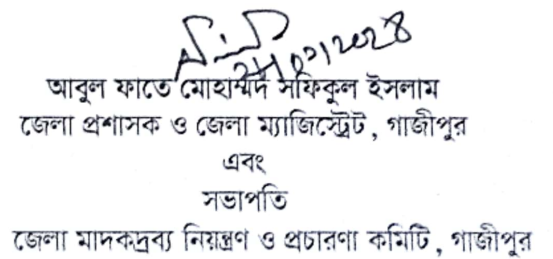 আবুল ফাতে মোহাম্মদ সফিকুল ইসলাম
জেলা প্রশাসক ও জেলা ম্যাজিস্ট্রেট, গাজীপুর
এবং
সভাপতি
জেলা মাদকদ্রব্য নিয়ন্ত্রণ ও প্রচারণা কমিটি, গাজীপুর